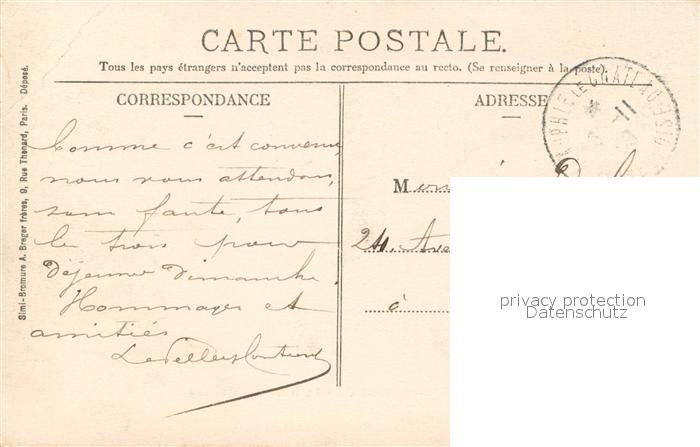 CARTE POSTALE.
Tous les pays étrangers n'acceptent pas la correspondance au recto. (Se renseigner à la poste).
CORRESPONDANCE
Comme c'est convenu,
nous vous attendons,
sans faute, tous
les trois pour
déjeuner Dimanche.
Hommages et
amitiés
ADRESSE
LE CHATEAU
11
M
24, Ave
à
privacy protection
Datenschutz
Simi-Bromure A. Breger frères, 9, Rue Thenard, Paris. Déposé.